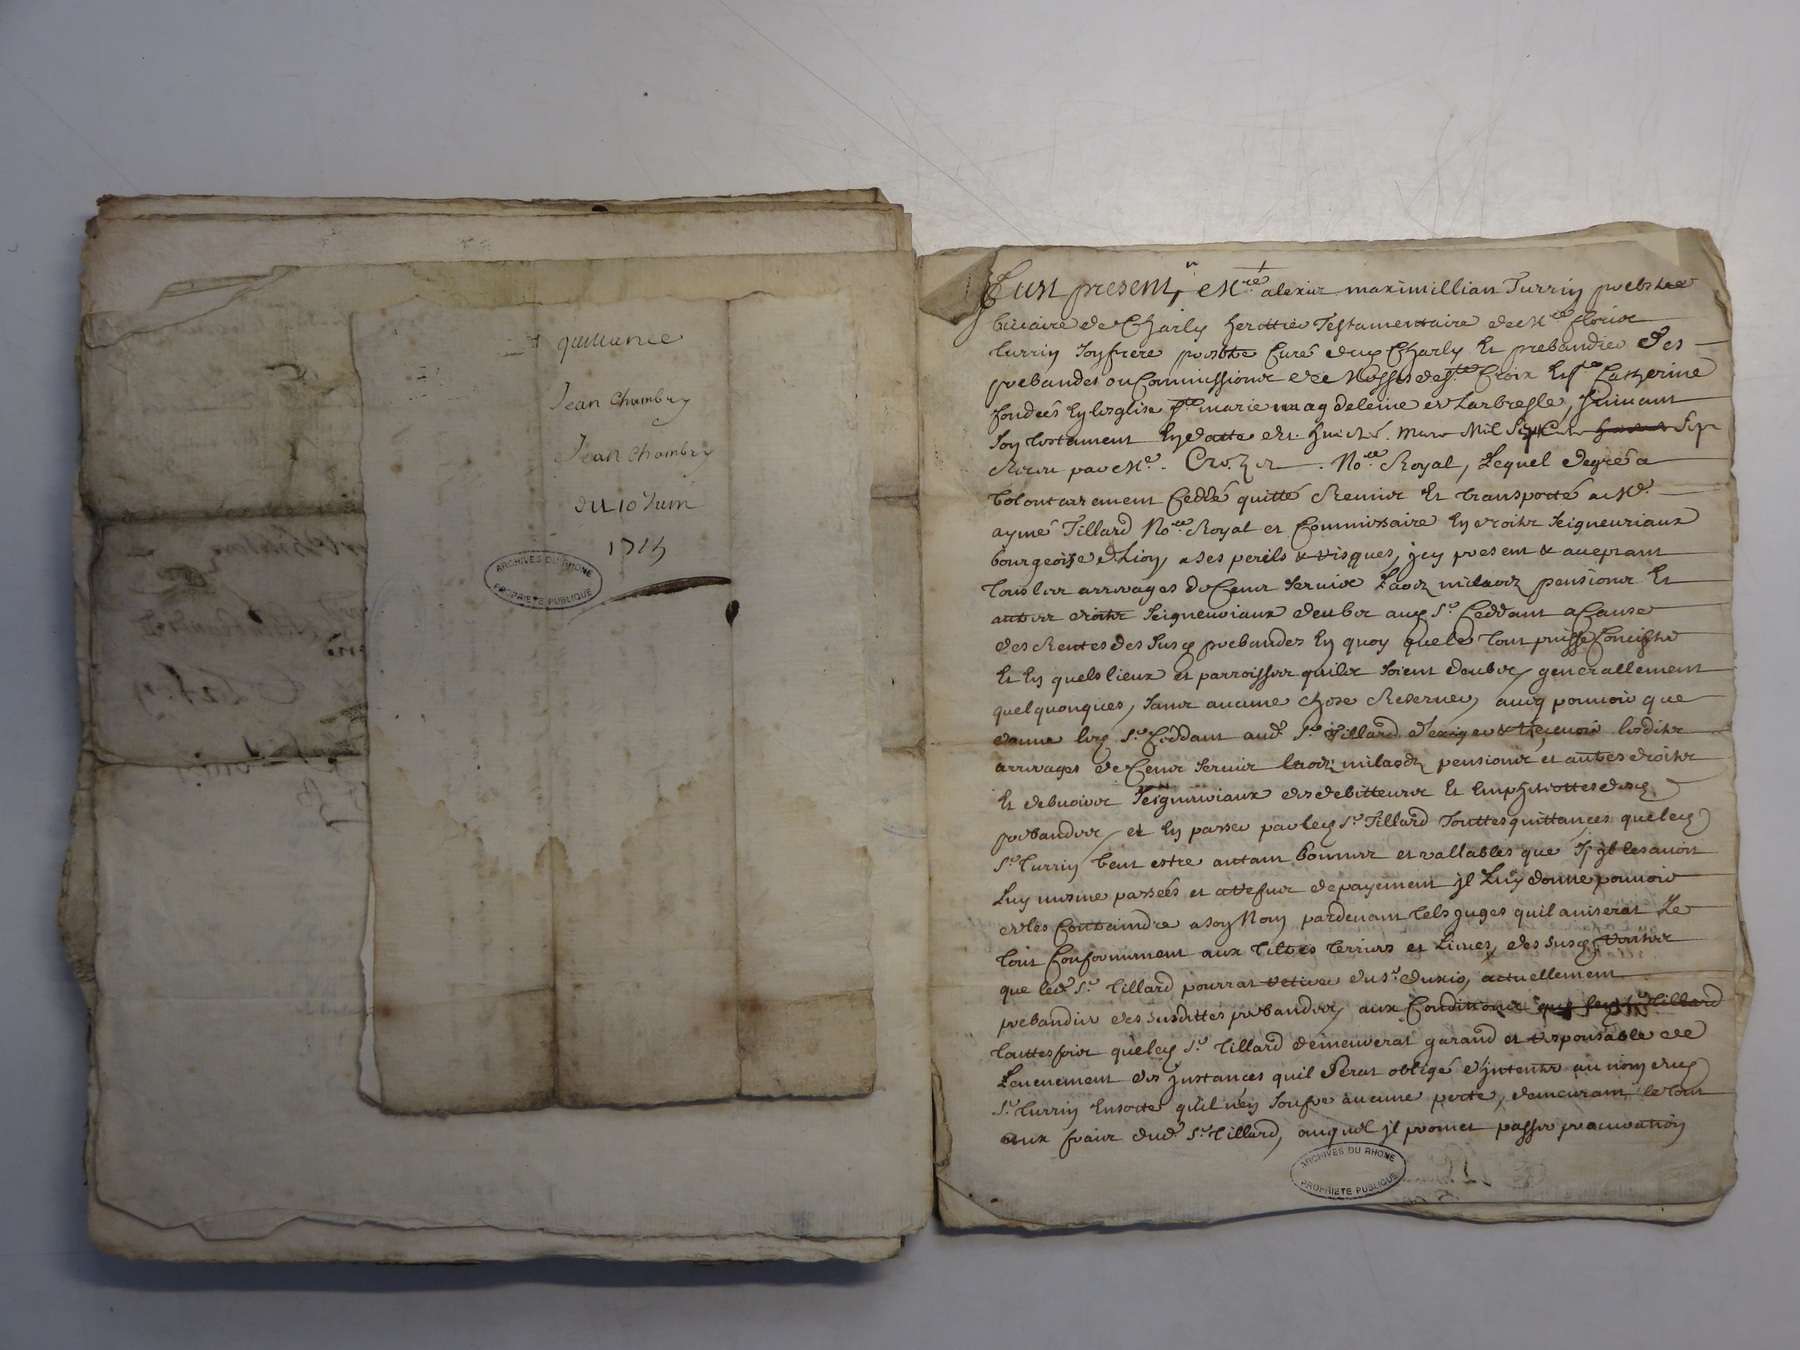 quittance
Jean Chambry
Jean Chambry
du 10 Juin
1715
ARCHIVES DU RHONE
PROPRIETE PUBLIQUE
Fust present, Mre alexis maximillian Turrin prebstre
vicaire de Charly heritier Testamentaire de Mre
turrin son frere prebstre Curé dud Charly Et prebandier des
prebandes ou Commissions de Messes de ste Croix Et ste Catherine
fondeés En leglise ste marie magdeleine de Larbresle, suivant
son testament En datte du huict mars Mil Sept
Receu par Me. Crozier Nore Royal, Lequel de gré a
volontairement Ceddé quitté Remis Et transporté a Me.
aymé Tillard Nore Royal et Commissaire En droits Seigneuriaux
bourgeois de Lion, a ses perils & risques, icy present & acceptant
tous les arrerages de Cens servis Laods milaods pensions Et
autres droits Seigneuriaux deubs aud Sr Ceddant a Cause
des Rentes des susd prebandes En quoy que le tout puisse Concister
Et En quels lieux et parroisses quils soient deubs, generallement
quelquonques, sans aucune chose Reserver, avecq pouvoir que
donne led Sr Ceddant aud Sr Tillard d'exiger & recevoir lesdits
arrerages de Cens servis laods milaods pensions et autres droits
Et debvoirs Seigneuriaux des debitteurs Et Emphiteottes desd
prebandes, et En passer par led Sr Tillard Touttes quittances que led
Sr Turrin veut estre autant bonnes et vallables que sy il les avoit
Luy mesme passeés et a deffaut de payement il Luy donne pouvoir
de les Contraindre a son Nom pardevant tels juges quil aviserat Le
tout Conformement aux tiltres terriers et Lieves des susd
que led Sr Tillard pourrat retirer du Sr actuellement
prebandier des susdittes prebandes, aux Conditions
touttesfois que led Sr Tillard demeurerat garand et responsable de
Levenement des instances quil serat obligé d'intenter au nom dud
Sr Turrin Ensorte quil n'en soufre aucune perte, demeurant le tout
aux frais dud Sr Tillard, auquel il promet passer procuration
ARCHIVES DU RHONE
PROPRIETE PUBLIQUE